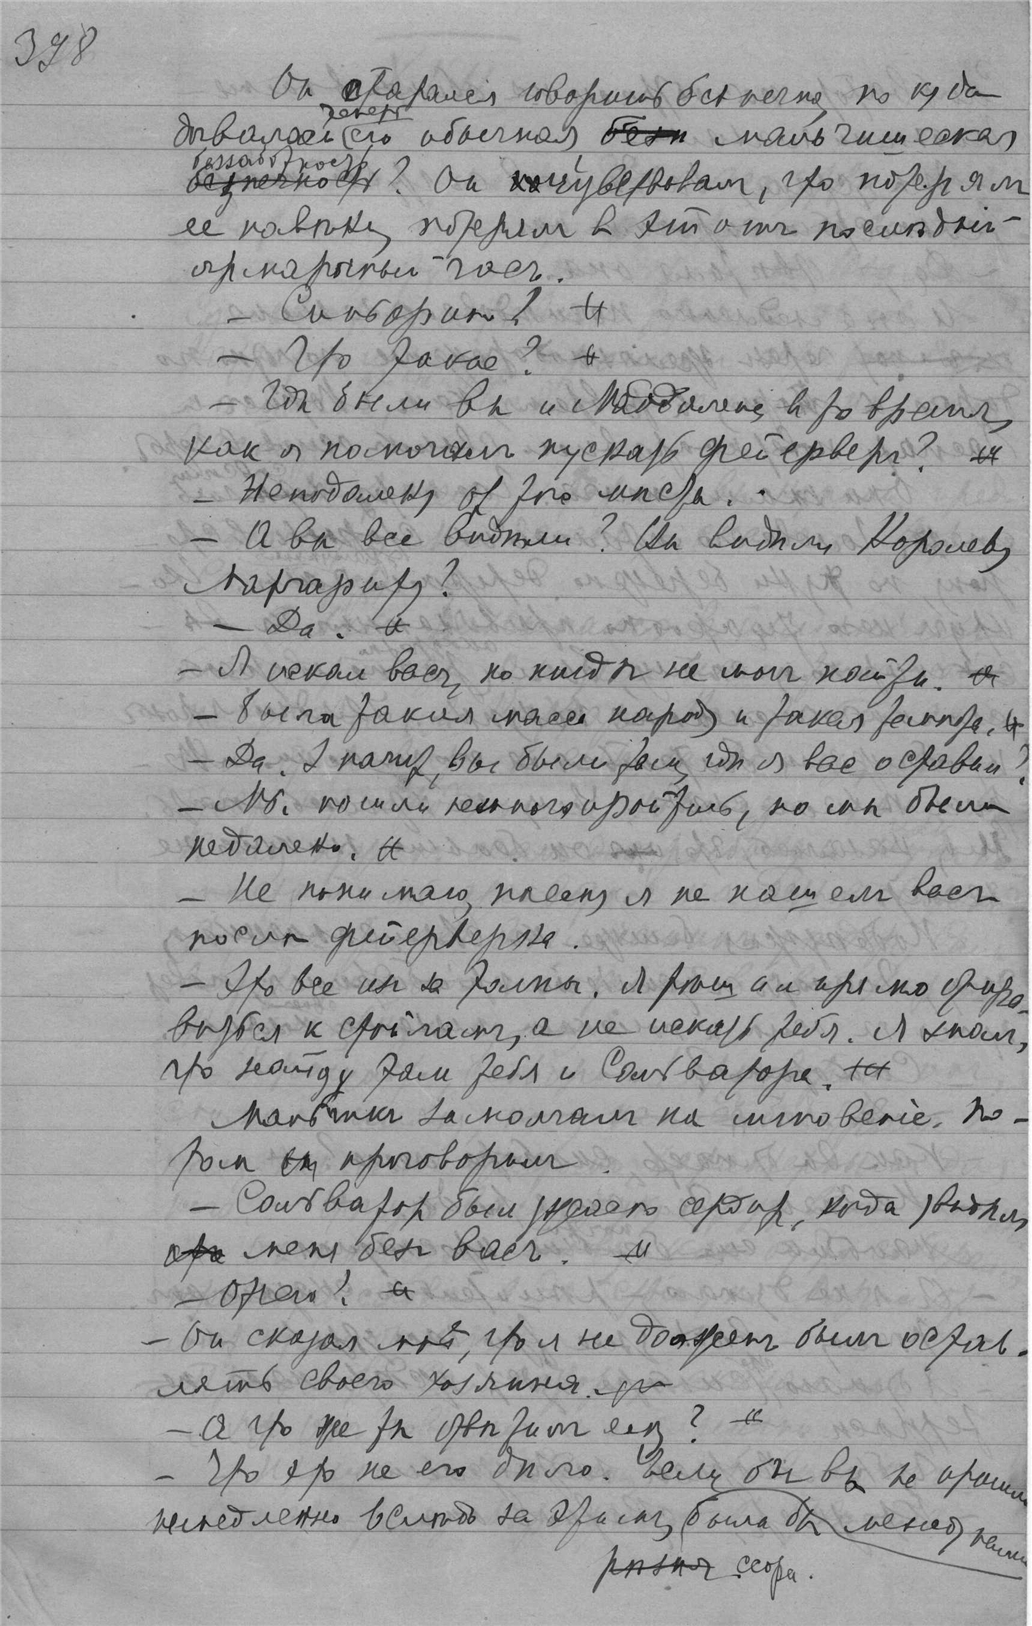 398
Он старался говорить беспечно, но куда
девалась теперь его обычная мальчишеская
беззаботность? Он чувствовалъ, что потерялъ
ее навѣки, потерялъ в этотъ последнiй
ярмарочный часъ.
— Синьорино!
— Что такое?
— Гдѣ были вы и Маддалена, в то время,
как я помогалъ пускать фейерверкъ?
— Неподалеку от того мѣста.
— А вы все видѣли? Вы видѣли Королеву
Маргариту?
— Да.
— Я искал васъ, но нигдѣ не могъ найти.
— Была такая масса народу и такая теснота.
— Да. Значит, вы были там, гдѣ я вас оставил?
— Мы пошли немного пройтись, но мы были
недалеко.
— Не понимаю, почему я не нашелъ васъ
послѣ фейерверка.
— Это все из за толпы. Я рѣшил прямо отпра-
виться к стойламъ, а не искать тебя. Я зналъ,
что найду там тебя и Сальватора.
Мальчикъ замолчалъ на мгновенiе. По-
том проговорилъ.
— Сальватор был ужасно сердит, когда увидѣлъ
меня без васъ.
— Отчего?
— Он сказал мнѣ, что я не долженъ былъ остав-
лять своего хозяина.
— А что же ты отвѣтилъ ему?
— Что это не его дѣло. Если бы вы не пришли
немедленно вслѣдъ за этимъ, была бы между нами
ссора.